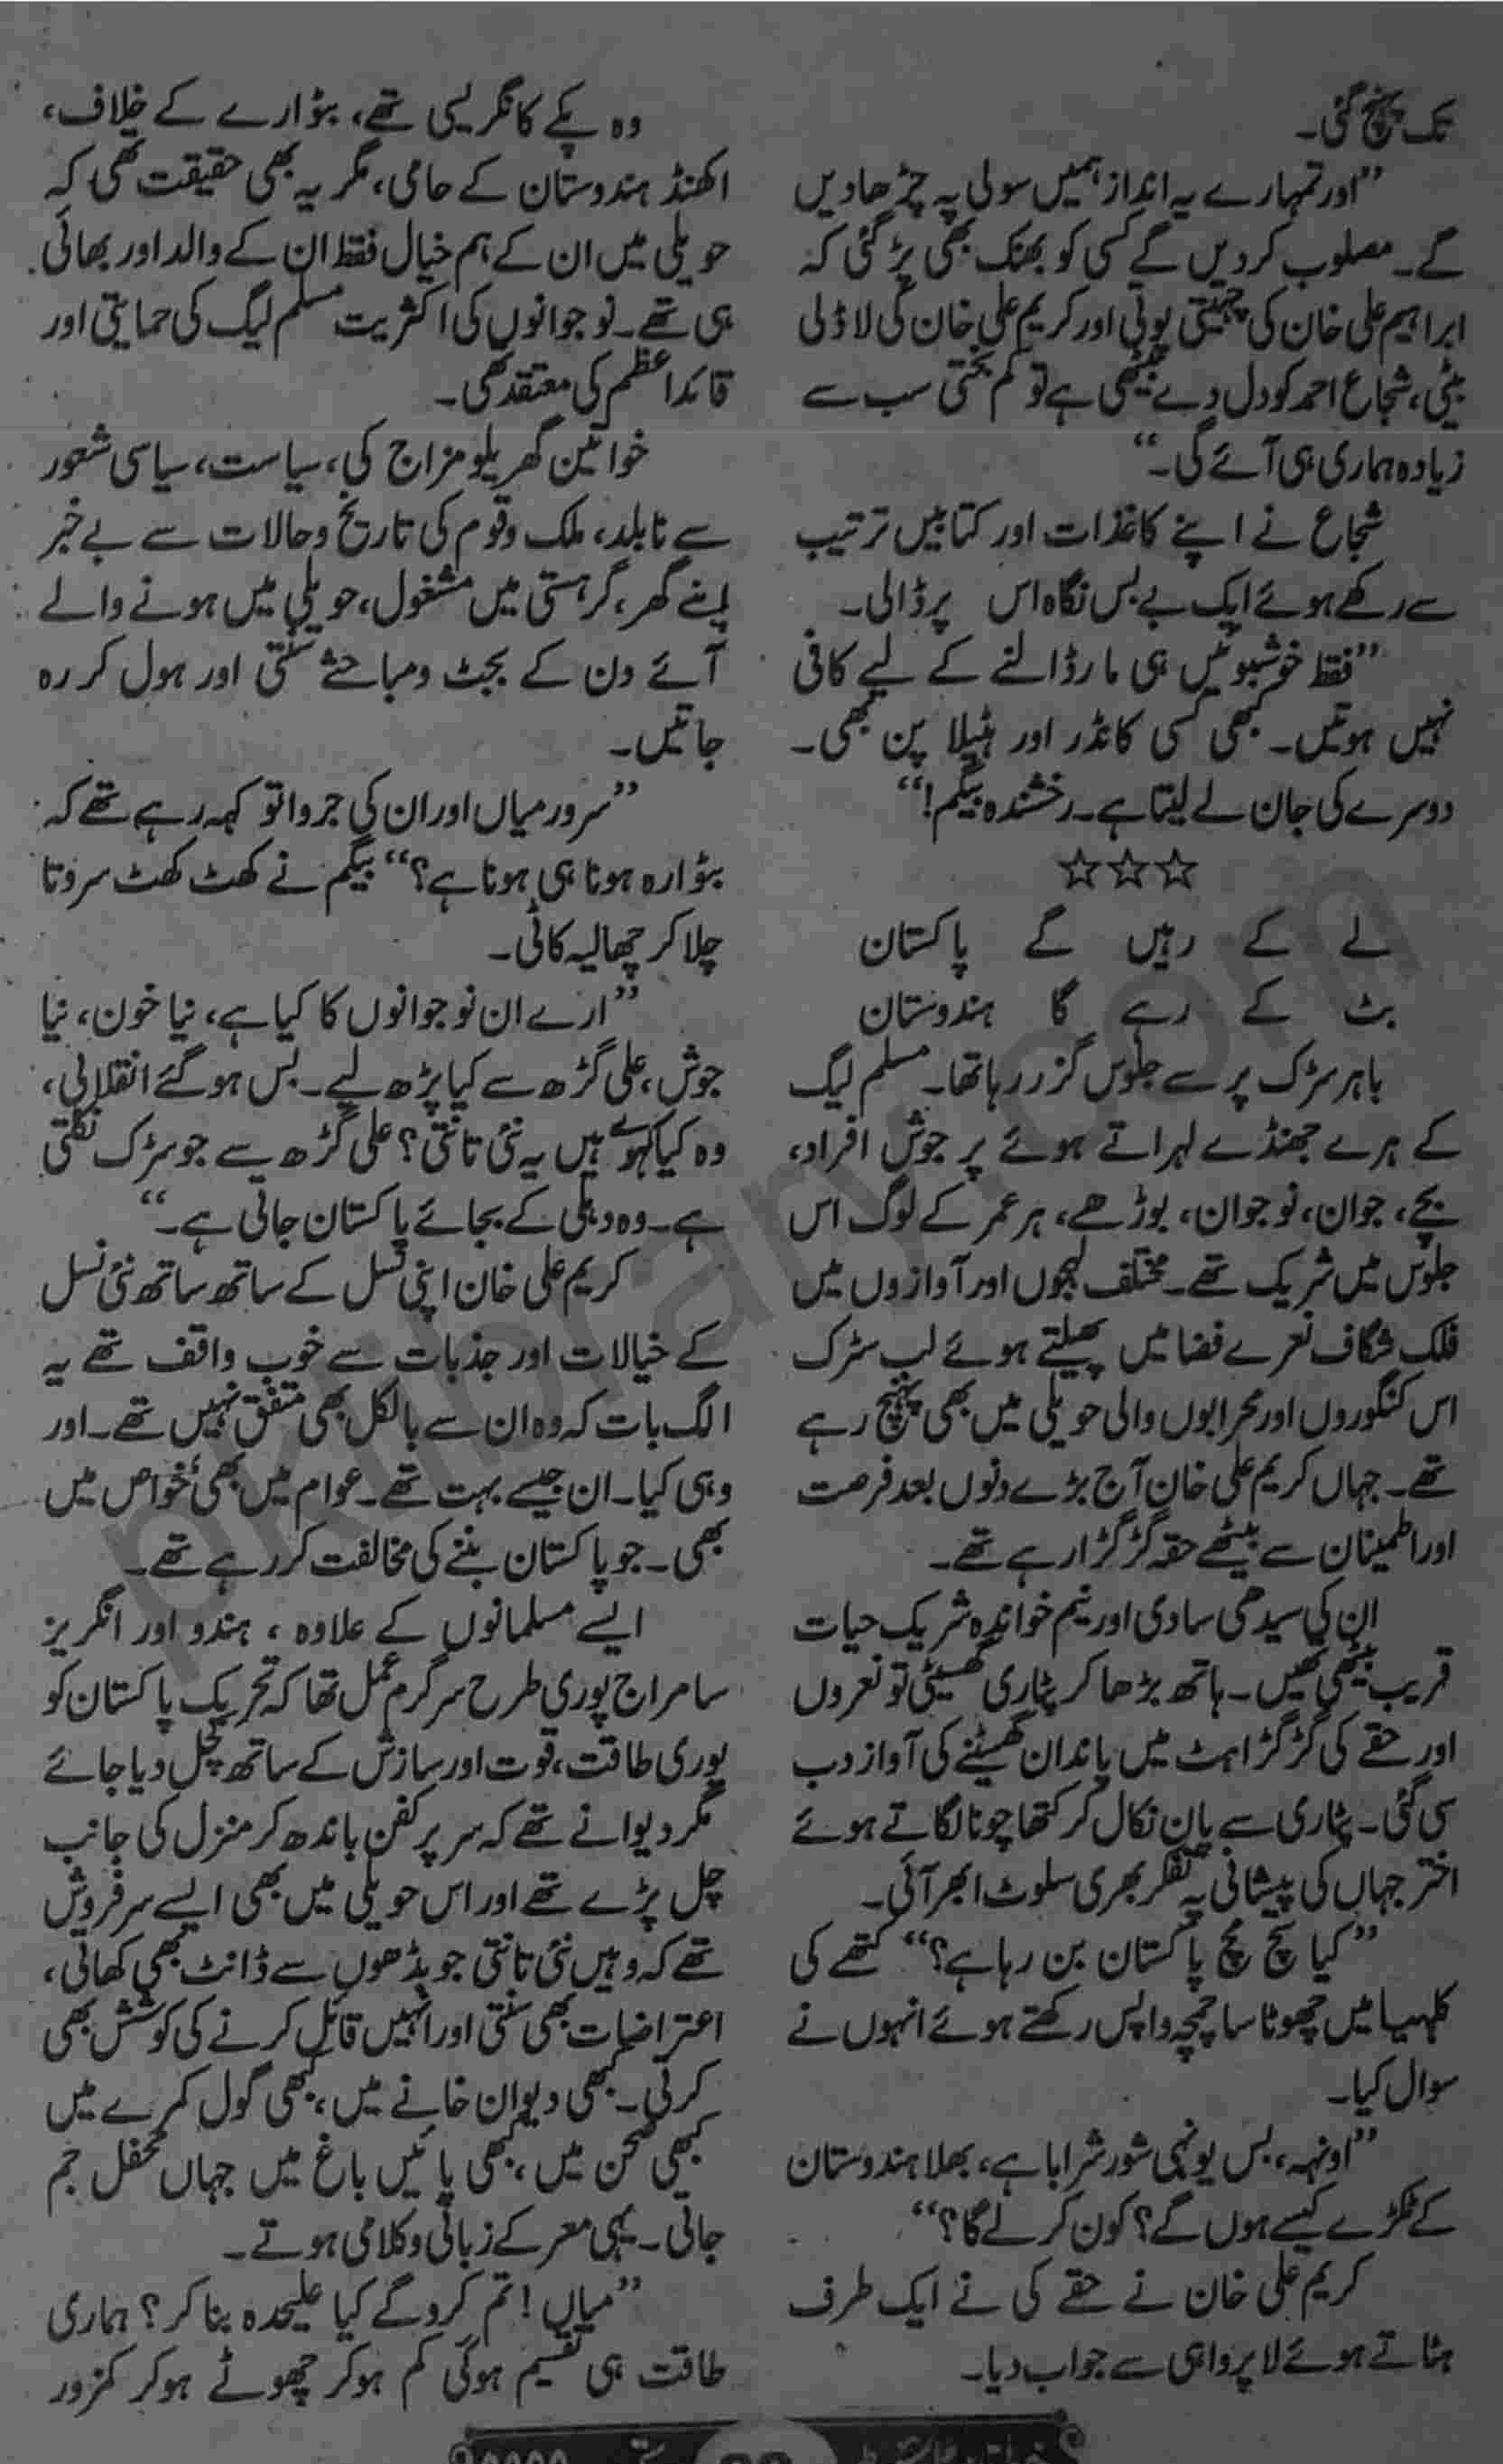 تک پہنچ گئی۔
”اور تمہارے یہ انداز ہمیں سولی پہ چڑھا دیں
گے۔ مصلوب کر دیں گے کسی کو بھنک بھی پڑ گئی کہ
ابراہیم علی خان کی چہیتی پوتی اور کریم علی خان کی لاڈلی
بیٹی، شجاع احمد کو دل دے بیٹھی ہے تو کم بختی سب سے
زیادہ ہماری ہی آئے گی۔“
شجاع نے اپنے کاغذات اور کتابیں ترتیب
سے رکھے ہوئے ایک بے بس نگاہ اس پر ڈالی۔
”فقط خوشبوئیں ہی مار ڈالنے کے لیے کافی
نہیں ہوتیں۔ کبھی کسی کا نڈر اور ہٹیلا پن بھی۔
دوسرے کی جان لے لیتا ہے۔ رخشندہ بیگم!“
☆☆☆
لے کے رہیں گے پاکستان
بٹ کے رہے گا ہندوستان
باہر سڑک پر سے جلوس گزر رہا تھا۔ مسلم لیگ
کے ہرے جھنڈے لہراتے ہوئے پر جوش افراد،
بچے، جوان، نوجوان، بوڑھے، ہر عمر کے لوگ اس
جلوس میں شریک تھے۔ مختلف لہجوں اور آوازوں میں
فلک شگاف نعرے فضا میں پھیلتے ہوئے لب سڑک
اس کنگوروں اور محرابوں والی حویلی میں بھی پہنچ رہے
تھے۔ جہاں کریم علی خان آج بڑے دنوں بعد فرصت
اور اطمینان سے بیٹھے حقہ گڑگڑا رہے تھے۔
ان کی سیدھی سادی اور نیم خواندہ شریک حیات
قریب بیٹھی تھیں۔ ہاتھ بڑھا کر پٹاری گھسیٹی تو نعروں
اور حقے کی گڑگڑاہٹ میں پاندان گھسیٹنے کی آواز دب
سی گئی۔ پٹاری سے پان نکال کر کتھا چونا لگاتے ہوئے
اختر جہاں کی پیشانی پہ تفکر بھری سلوٹ ابھر آئی۔
”کیا سچ مچ پاکستان بن رہا ہے؟“ کتھے کی
کلہیا میں چھوٹا سا چمچہ واپس رکھتے ہوئے انہوں نے
سوال کیا۔
”اونہہ، بس یونہی شور شرابا ہے، بھلا ہندوستان
کے ٹکڑے کیسے ہوں گے؟ کون کر لے گا؟“
کریم علی خان نے حقے کی نے ایک طرف
ہٹاتے ہوئے لاپرواہی سے جواب دیا۔
وہ پکے کانگریسی تھے، بٹوارے کے خلاف،
اکھنڈ ہندوستان کے حامی، مگر یہ بھی حقیقت تھی کہ
حویلی میں ان کے ہم خیال فقط ان کے والد اور بھائی
ہی تھے۔ نوجوانوں کی اکثریت مسلم لیگ کی حمایتی اور
قائداعظم کی معتقد تھی۔
خواتین گھریلو مزاج کی، سیاست، سیاسی شعور
سے نابلد، ملک وقوم کی تاریخ وحالات سے بے خبر
اپنے گھر، گرہستی میں مشغول، حویلی میں ہونے والے
آئے دن کے بحث ومباحثے سنتی اور ہول کر رہ
جاتیں۔
”سرور میاں اور ان کی جروا تو کہہ رہے تھے کہ
بٹوارہ ہونا ہی ہونا ہے؟“ بیگم نے کھٹ کھٹ سروتا
چلا کر چھالیہ کاٹی۔
”ارے ان نوجوانوں کا کیا ہے، نیا خون، نیا
جوش، علی گڑھ سے کیا پڑھ لیے۔ بس ہو گئے انقلابی،
وہ کیا کہوے ہیں یہ نئی تانتی؟ علی گڑھ سے جو سڑک نکلتی
ہے۔ وہ دہلی کے بجائے پاکستان جاتی ہے۔“
کریم علی خان اپنی نسل کے ساتھ ساتھ نئی نسل
کے خیالات اور جذبات سے خوب واقف تھے یہ
الگ بات کہ وہ ان سے بالکل بھی متفق نہیں تھے۔ اور
وہی کیا۔ ان جیسے بہت تھے۔ عوام میں بھی، خواص میں
بھی۔ جو پاکستان بننے کی مخالفت کر رہے تھے۔
ایسے مسلمانوں کے علاوہ، ہندو اور انگریز
سامراج پوری طرح سرگرم عمل تھا کہ تحریک پاکستان کو
پوری طاقت، قوت اور سازش کے ساتھ کچل دیا جائے
مگر دیوانے تھے کہ سر پر کفن باندھ کر منزل کی جانب
چل پڑے تھے اور اس حویلی میں بھی ایسے سرفروش
تھے کہ وہیں نئی تانتی جو بڈھوں سے ڈانٹ بھی کھاتی،
اعتراضات بھی سنتی اور انہیں قائل کرنے کی کوشش بھی
کرتی۔ کبھی دیوان خانے میں، کبھی گول کمرے میں
کبھی صحن میں، کبھی پائیں باغ میں جہاں محفل جم
جاتی۔ یہی معرکے زبانی وکلامی ہوتے۔
”میاں! تم کرو گے کیا علیحدہ بنا کر؟ ہماری
طاقت ہی تقسیم ہوگی کم ہوکر چھوٹے ہوکر کمزور
pklibrary.com